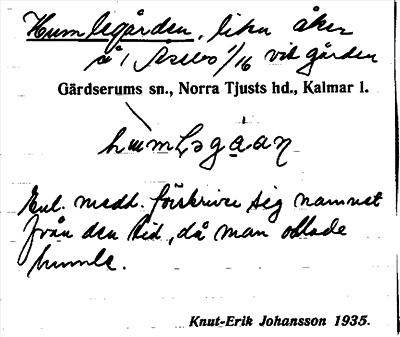 Humlegården, liten åker
på Åsebo 1/16 vid gården
Gärdserums sn., Norra Tjusts hd., Kalmar l.
Enl. medd. förskriver sig namnet
från den tid, då man odlade
humle.
Knut-Erik Johansson 1935.